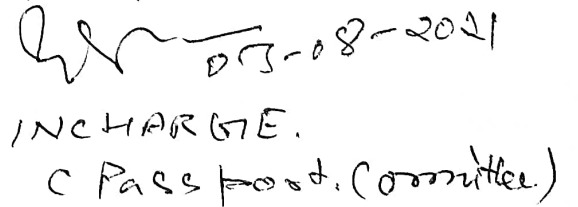 03-08-2021
INCHARGE.
( Passport. Committee)